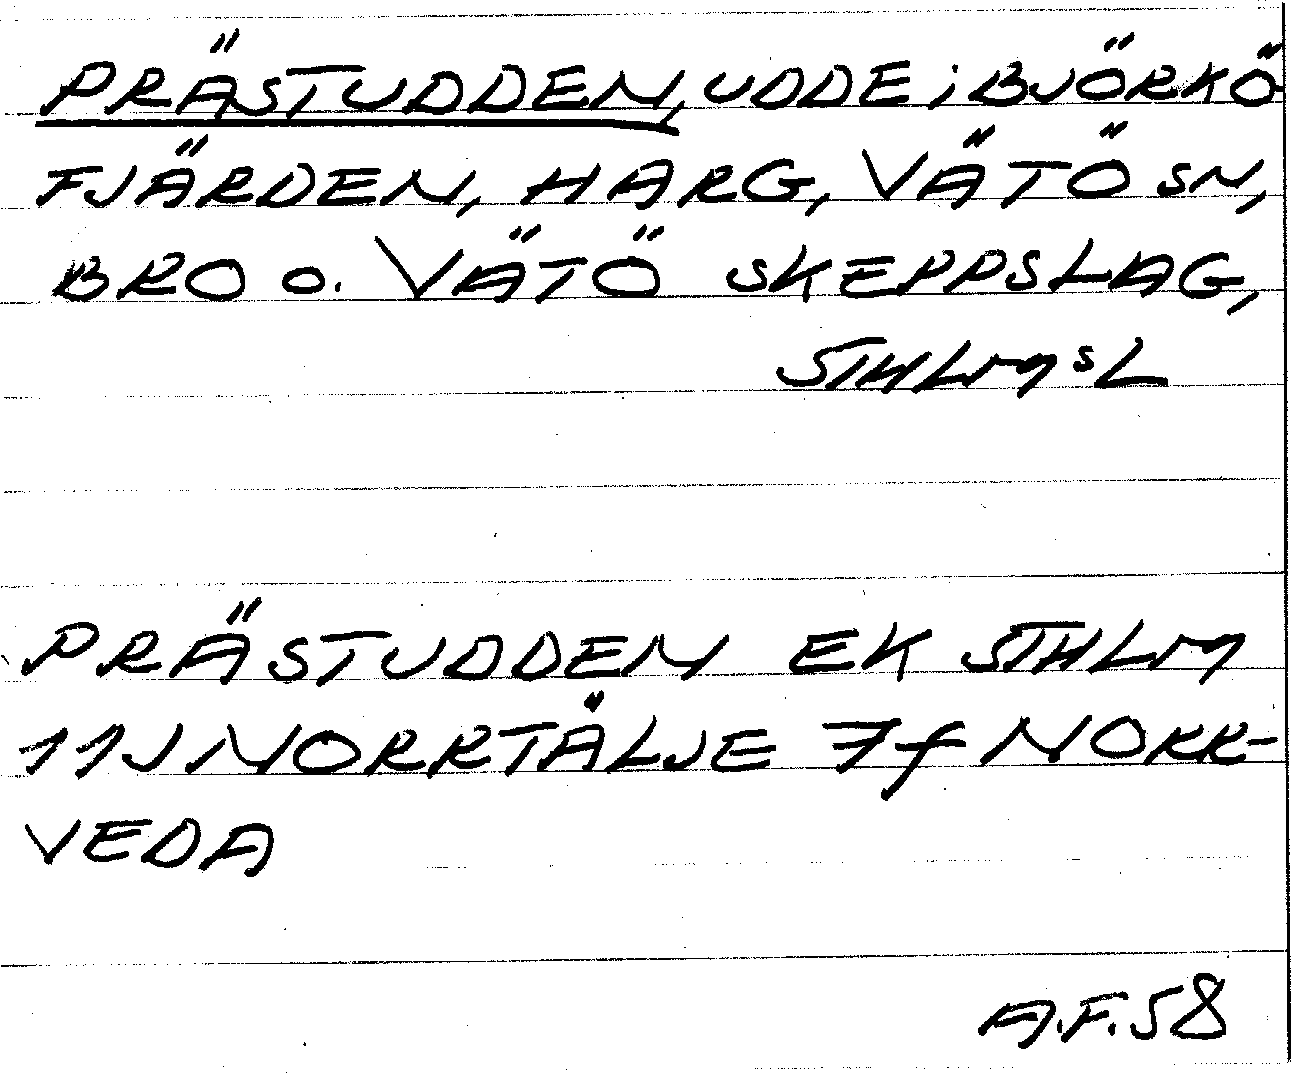 PRÄSTUDDEN, UDDE i BJÖRKÖ-
FJÄRDEN, HARG, VÄTÖ SN,
BRO O. VÄTÖ SKEPPSLAG,
STHLMSL
PRÄSTUDDEN EK STHLM
11J NORRTÄLJE 7f NORR-
VEDA
A.F.58